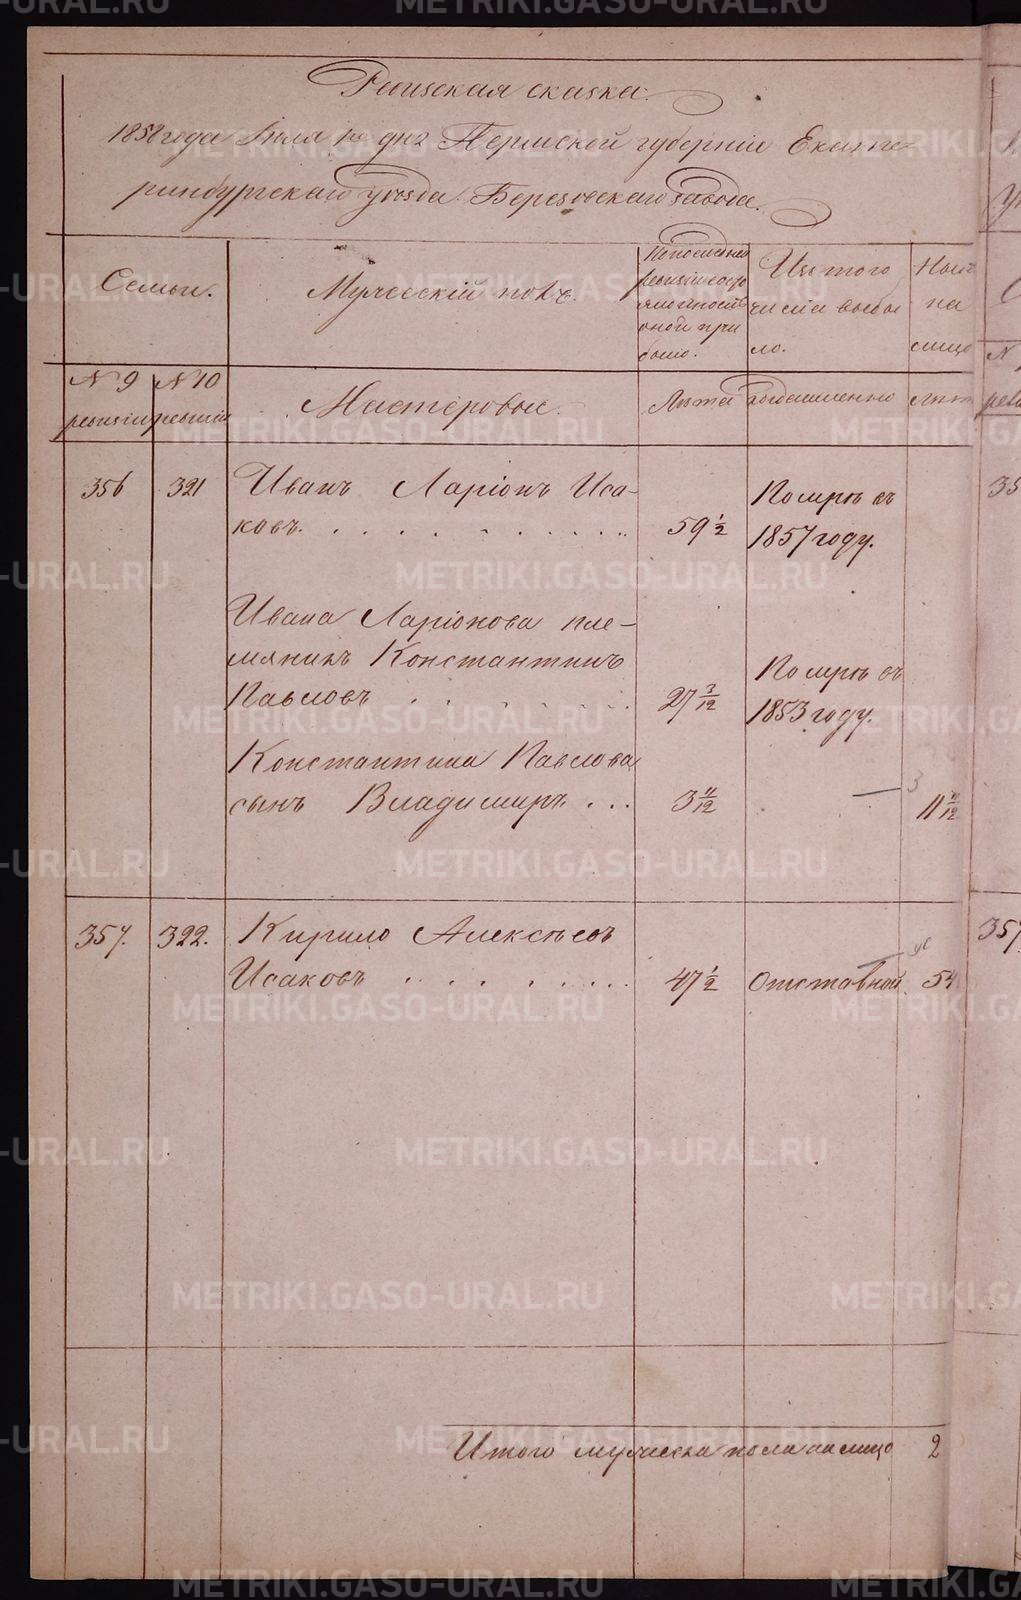 Ревизская сказка.
1858 года Июля 1го дня Пермской губернiи Екате-
ринбургскаго уѣзда Березовскаго завода.
Семьи.
Мужескiй полъ.
По последней
ревизiи состо
яло и послѣ
оной при
было.
Изъ того
числа выбы
ло.
Нынѣ
на
лицо
N 9
ревизiи
N 10
ревизiи
Мастеровые.
Лѣта
Лѣта
356
321
Иванъ Ларiонъ Иса-
ковъ. . . . . . . . . . . .
59 1/2
Помре въ
1857 году.
Ивана Ларiонова пле-
мяникъ Константинъ
Павловъ . . . . . . .
27 3/12
Помре въ
1853 году.
Константина Павлова
сынъ Владимиръ . . .
3 11/12
—
3
11 11/12
357.
322.
Кирило Алексѣевъ
Исаковъ . . . . . . . . .
47 1/2
Отставной
54
Итого мужеска пола на лицо
2
METRIKI.GASO-URAL.RU